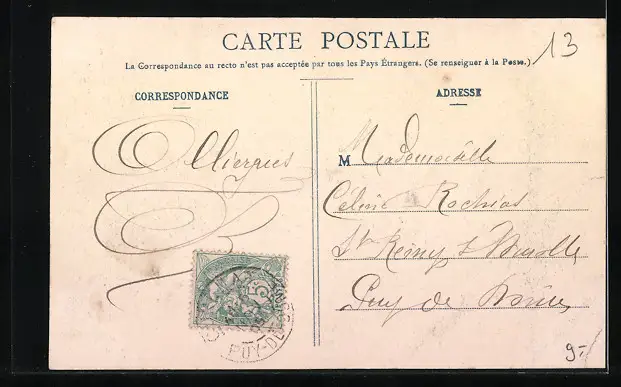 CARTE POSTALE
13
La Correspondance au recto n'est pas acceptée par tous les Pays Étrangers. (Se renseigner à la Poste.)
CORRESPONDANCE
ADRESSE
Olliergues
Mademoiselle
Céline Rochias
St Remy s/ Durolle
Puy de Dôme
PUY-DE
9-